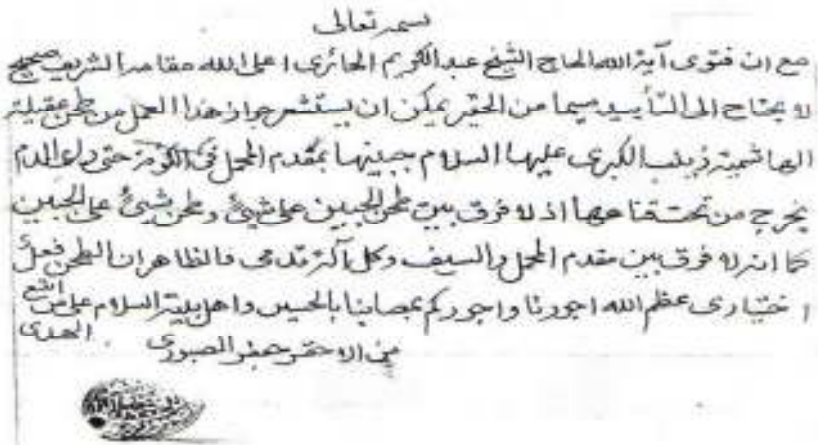 بسمه تعالى
مع ان فتوى آية الله الحاج الشيخ عبد الكريم الحائرى اعلى الله مقامه الشريف صحيح
لا يحتاج الى التأييد سيما من الحقير يمكن ان يستشعر جواز هذا العمل من طحن عقيلة
الهاشمية زينب الكبرى عليها السلام جبينها بمقدم المحمل فى الكوفة حتى راى الدم
يخرج من تحت قناعها اذ لا فرق بين طحن الجبين على شيئ و طحن شيئ على الجبين
كما انه لا فرق بين مقدم المحمل والسيف وكل آلة تدمى فالظاهر ان الطحن فعل
اختيارى عظم الله اجورنا واجوركم بمصابنا بالحسين واهل بيته السلام على من اتبع
الهدى
من الاحقر جعفر الصبورى